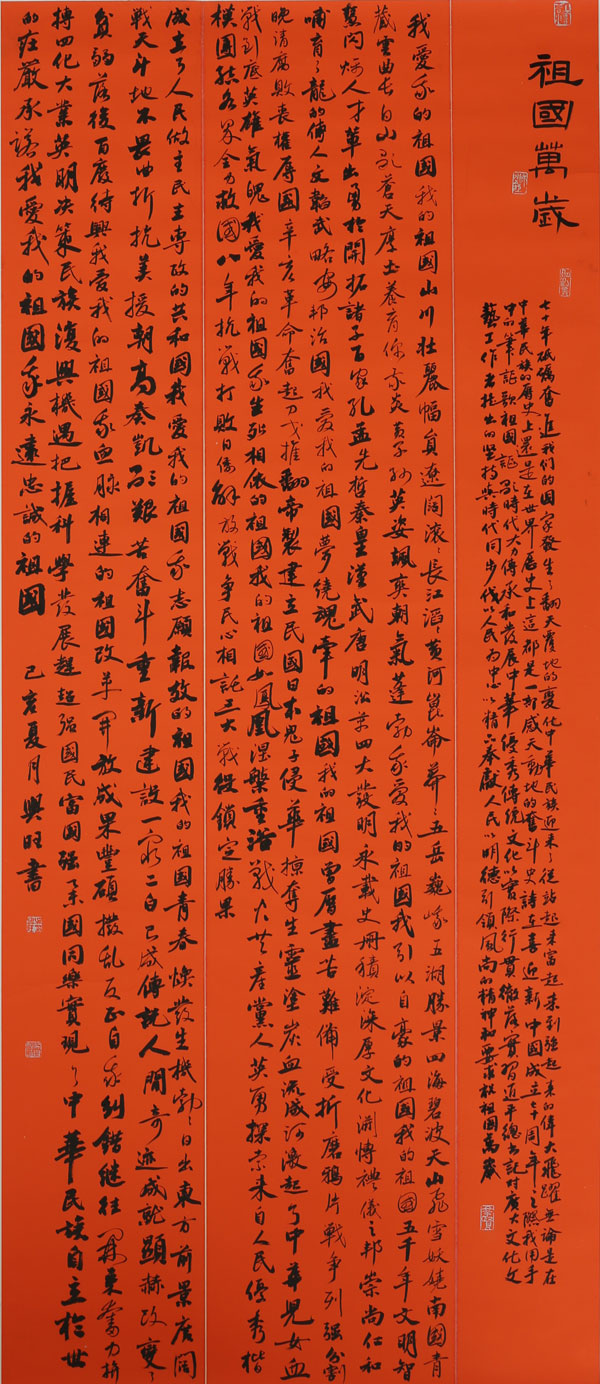 祖國萬歲
七十年砥礪奮進我们的国家發生了翻天覆地的變化中華民族迎来了從站起来富起来到强起来的偉大飛躍無論是在
中華民族的歷史上還是在世界歷史上這都是一部感天動地的奮斗史詩在喜迎新中國成立七十周年之際我用手
中的筆謳歌祖國謳歌時代大力傳承和發展中華優秀傳统文化以實際行動貫徹落實習近平總书記对廣大文化文
藝工作者提出的坚持與時代同步伐以人民为中心以精品奉獻人民以明德引領風尚的精神和要求祝祖國萬歲
我愛我的祖国我的祖國山川壯麗幅員遼闊滚滚長江滔滔黄河崑崙莽莽五岳巍峨五湖勝景四海碧波天山飛雪妖嬈南國青
藏雲曲长白山歌蒼天厚土養育你我炎黄子孙英姿飒爽朝氣蓬勃我愛我的祖國我引以自豪的祖國我的祖国五千年文明智
慧闪烁人才華出勇於開拓諸子百家孔孟先哲秦皇漢武唐明治業四大發明永載史册積淀深厚文化渊博禮儀之邦崇尚仁和
哺育了龍的傳人文韬武略安邦治国我爱我的祖國夢绕魂牵的祖国我的祖国曾歷盡苦難備受折磨鴉片戰争列强分割
晚清腐敗喪權辱國辛亥革命奮起刀戈推翻帝製建立民國日本鬼子侵華掠夺生靈塗炭血流成河激起了中華兒女血
戰到底英雄氣魄我爱我的祖國我生死相依的祖國我的祖國如鳳凰涅槃重浴戰火共產黨人英勇探索来自人民優秀楷
模團結各界全力救國八年抗戰打敗日倭解放戰争民心相託三大戰役鎖定勝果
成立了人民做主民主專政的共和國我爱我的祖国我志願報效的祖國我的祖国青春焕發生機勃勃日出東方前景廣闊
戰天斗地不畏曲折抗美援朝高奏凱歌艰苦奮斗重新建設一窮二白已成傳說人間奇迹成就顯赫改變了
貧弱落後百廢待興我爱我的祖国我血脉相連的祖国改革開放成果豐碩撥乱反正自我糾錯继往開来奮力拼
搏四化大業英明决策民族復興機遇把握科學發展超越强國民富國强举國同樂實現了中華民族自立於世
的庄嚴承諾我愛我的祖國我永遠忠誠的祖國
己亥夏月興旺書